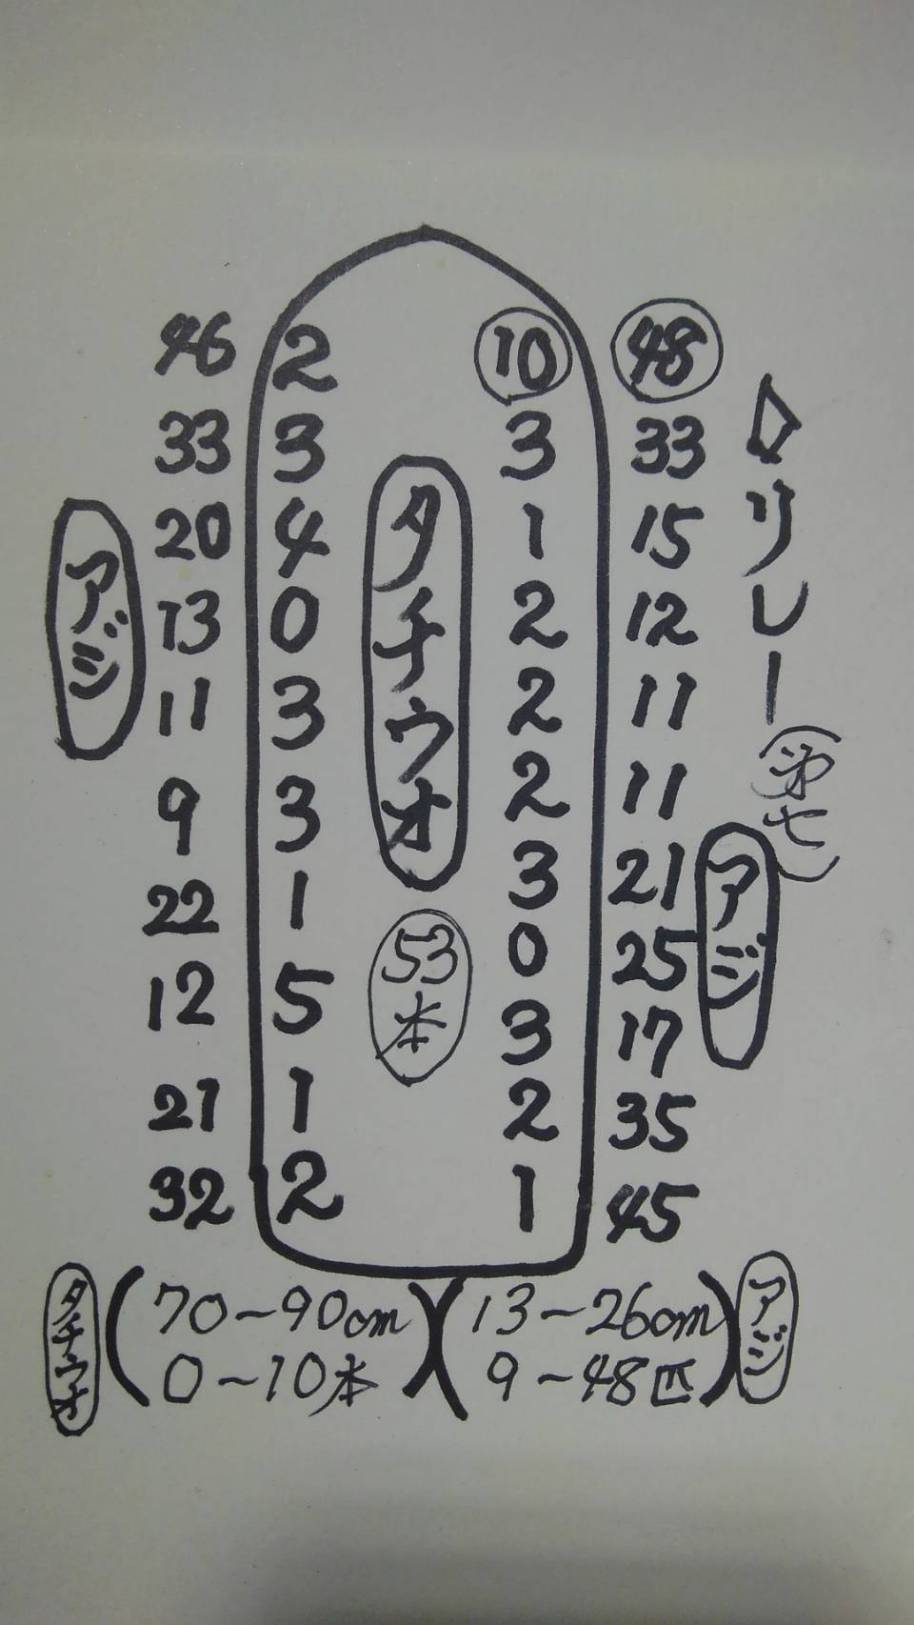 46 2 10 48
33 3 3 33
20 4 1 15
13 0 2 12
11 3 2 11
9 3 2 11
22 1 3 21
12 5 0 25
21 1 3 17
32 2 2 35
1 45
アジ
タチウオ
53本
リレー
(第七)
アジ
タチウオ (70~90cm) (13~26cm) アジ
0~10本 9~48匹